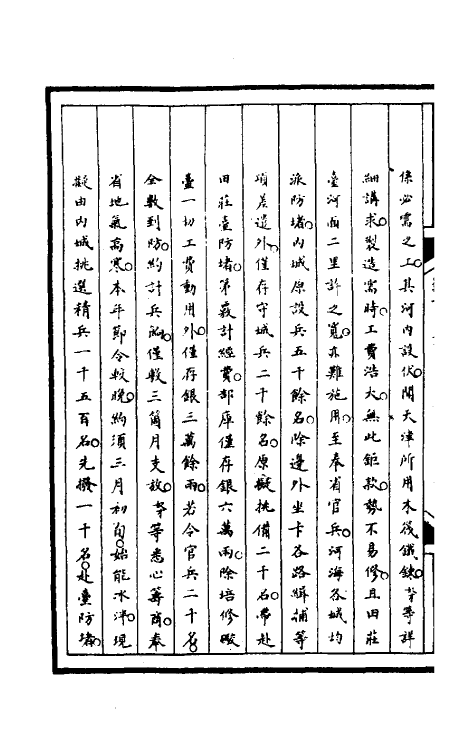 係必需之工。其河內設伏聞天津所用木筏鐵鍊。等等詳
細講求製造需時。工費浩大。無此鉅款。勢不易修。且田莊
臺河面二里許之寬。亦難施用。至奉省官兵。河海各城均
派防堵。內城原設兵五千餘名。除邊外坐卡各路緝捕等
項差遣外。僅存守城兵二千餘名。原擬挑備二千名。帶赴
田莊臺防堵。第覈計經費。部庫僅存銀六萬兩。除培修礮
臺一切工費動用外。僅存銀三萬餘兩。若令官兵二千名。
全數到防。約計兵餉僅敷三箇月支放。等等悉心籌商。奉
省地氣高寒。本年節令較晚。約須三月初旬。始能冰泮。現
擬由內城挑選精兵一千五百名。先撥一千名。赴臺防堵。